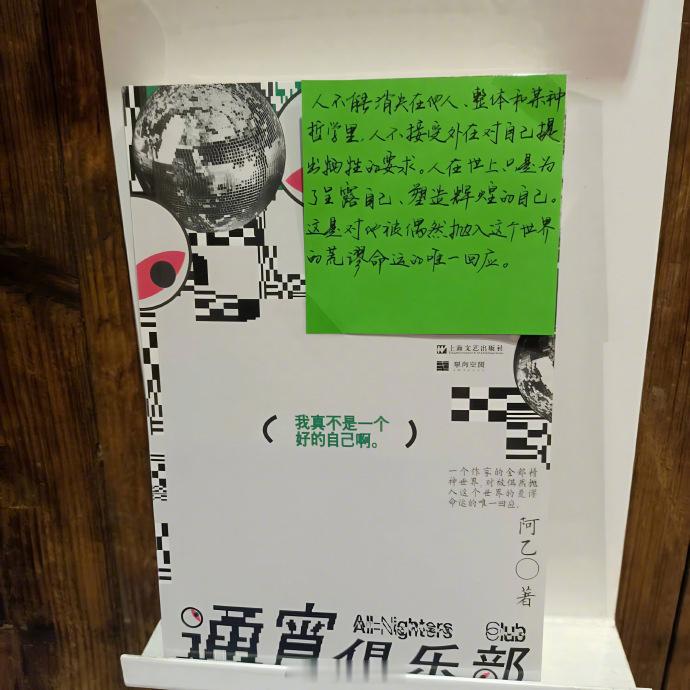 人不能消失在他人、整体和某种
哲学里,人不接受外在对自己提
出牺牲的要求。人在世上只是为
了呈露自己、塑造辉煌的自己。
这是对他被偶然抛入这个世界
的荒谬命运的唯一回应。
上海文艺出版社
单向空间
(我真不是一个
好的自己啊。)
一个作家的全部精
神世界,对被偶然抛
入这个世界的荒谬
命运的唯一回应。
阿乙〇著
All-Nighters Club
通宵俱乐部